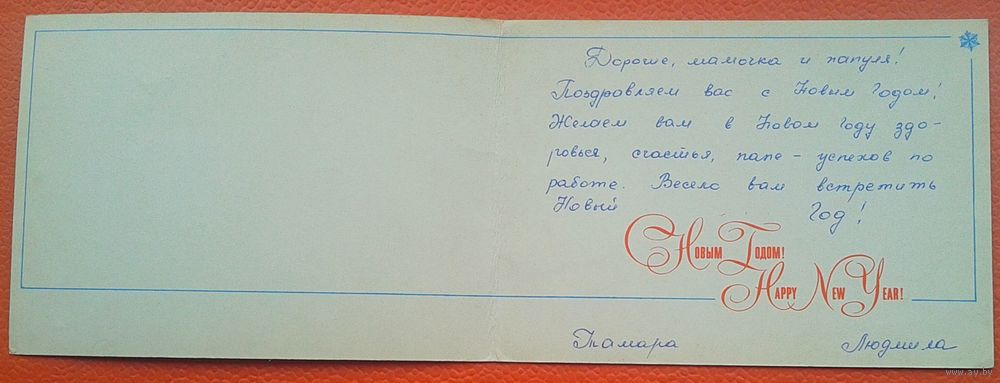 Дорогие, мамочка и папуля!
Поздравляем вас с Новым Годом!
Желаем вам в Новом Году здо-
ровья, счастья, папе - успехов по
работе. Весело вам встретить
Новый Год!
С Новым Годом!
Happy New Year!
Тамара Людмила
www.ay.by